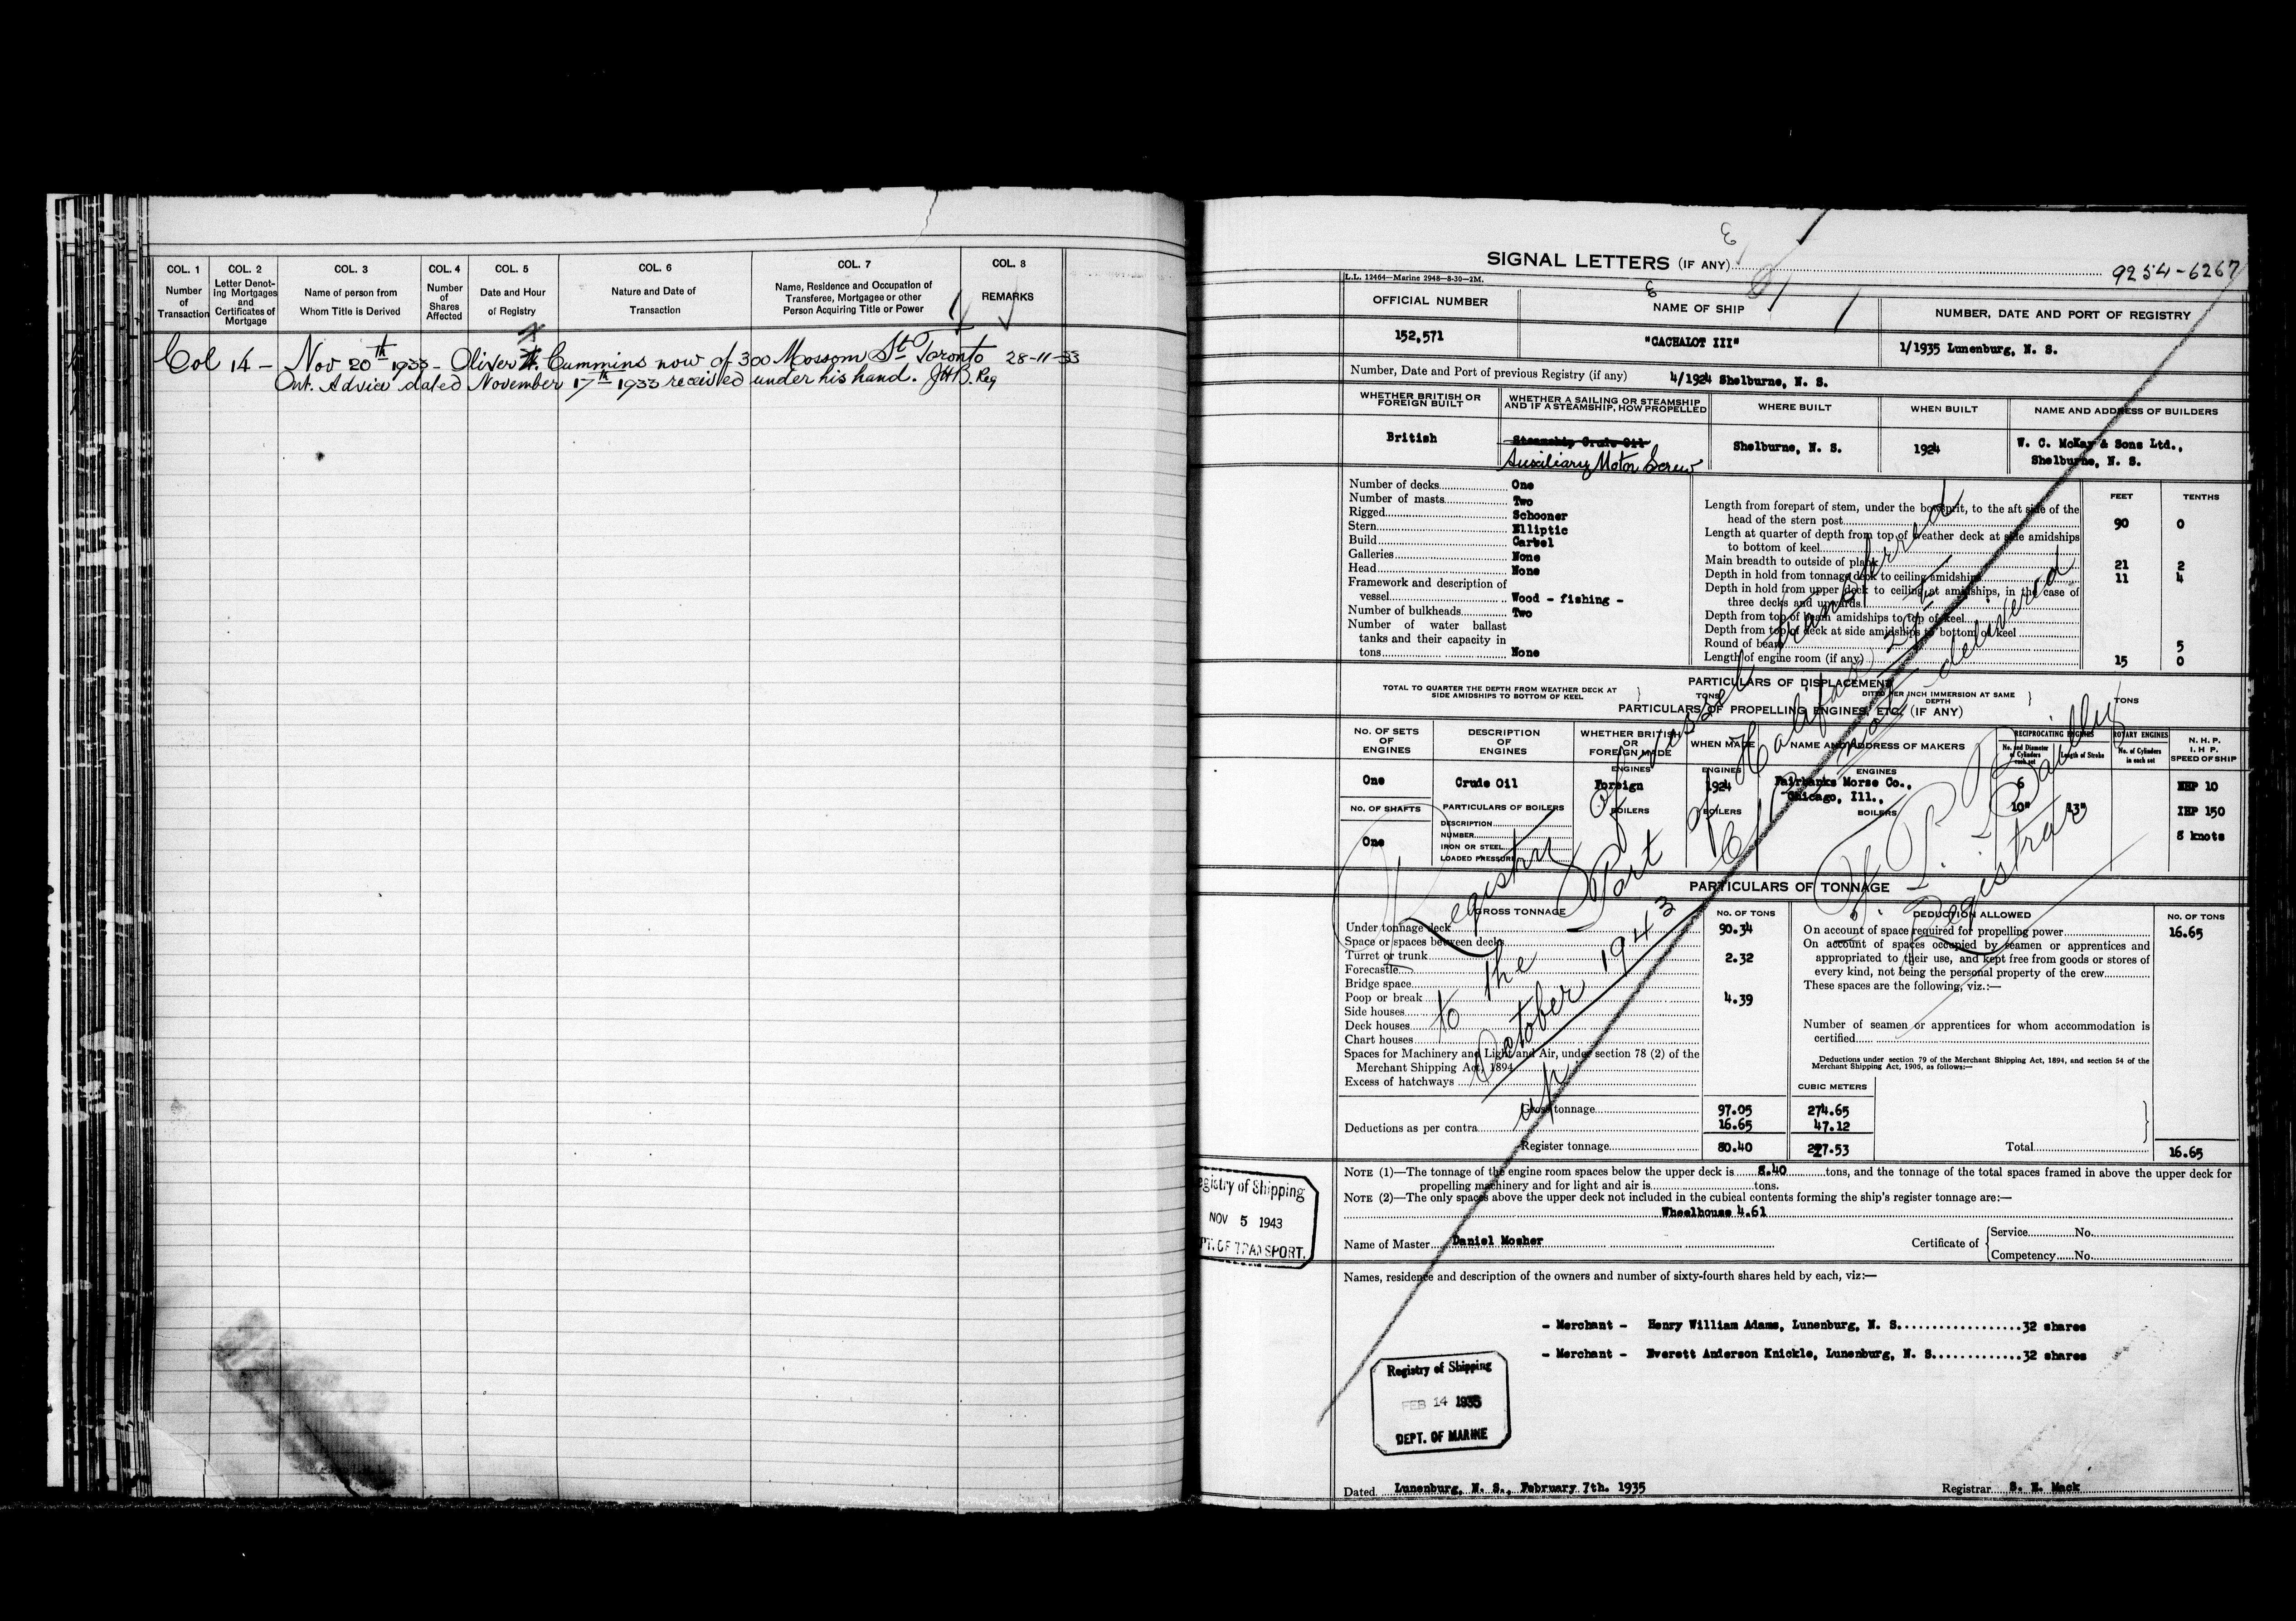 COL. 1
Number of Transaction
COL. 2
Letter Denoting Mortgages and Certificates of Mortgage
COL. 3
Name of person from Whom Title is Derived
COL. 4
Number of Shares Affected
COL. 5
Date and Hour of Registry
COL. 6
Nature and Date of Transaction
COL. 7
Name, Residence and Occupation of Transferee, Mortgagee or other Person Acquiring Title or Power
COL. 8
REMARKS
Col 14 - Nov 20th 1933 - Oliver Cummins now of 300 Mossom St Toronto 28-11-33
Ont. Advice dated November 17th 1933 received under his hand. JHB. Reg
SIGNAL LETTERS (IF ANY)
9254-6267
L.L. 12464—Marine 2948—8-30—2M.
OFFICIAL NUMBER
NAME OF SHIP
NUMBER, DATE AND PORT OF REGISTRY
152,571
"CACHALOT III"
1/1935 Lunenburg, N. S.
Number, Date and Port of previous Registry (if any) 4/1924 Shelburne, N. S.
WHETHER BRITISH OR FOREIGN BUILT
WHETHER A SAILING OR STEAMSHIP AND IF A STEAMSHIP, HOW PROPELLED
WHERE BUILT
WHEN BUILT
NAME AND ADDRESS OF BUILDERS
British
Steamship Crude Oil
Auxiliary Motor Screw
Shelburne, N. S.
1924
W. C. McKay & Sons Ltd.,
Shelburne, N. S.
Number of decks One
Number of masts Two
Rigged Schooner
Stern Elliptic
Build Carvel
Galleries None
Head None
Framework and description of
vessel Wood - fishing -
Number of bulkheads Two
Number of water ballast
tanks and their capacity in
tons None
FEET TENTHS
Length from forepart of stem, under the bowsprit, to the aft side of the
head of the stern post 90 0
Length at quarter of depth from top of weather deck at side amidships
to bottom of keel
Main breadth to outside of plank 21 2
Depth in hold from tonnage deck to ceiling amidships 11 4
Depth in hold from upper deck to ceiling at amidships, in the case of
three decks and upwards
Depth from top of beam amidships to top of keel
Depth from top of deck at side amidships to bottom of keel
Round of beam 5
Length of engine room (if any) 15 0
PARTICULARS OF DISPLACEMENT
TOTAL TO QUARTER THE DEPTH FROM WEATHER DECK AT SIDE AMIDSHIPS TO BOTTOM OF KEEL
TONS
DITTO PER INCH IMMERSION AT SAME DEPTH
TONS
PARTICULARS OF PROPELLING ENGINES, ETC. (IF ANY)
No. OF SETS OF ENGINES
DESCRIPTION OF ENGINES
WHETHER BRITISH OR FOREIGN MADE
WHEN MADE
NAME AND ADDRESS OF MAKERS
RECIPROCATING ENGINES
No. and Diameter of Cylinders each set
Length of Stroke
ROTARY ENGINES
No. of Cylinders in each set
N. H. P.
I. H P.
SPEED OF SHIP
ENGINES ENGINES ENGINES
One
Crude Oil
Foreign
1924
Fairbanks Morse Co.,
Chicago, Ill.,
6
10"
13"
NHP 10
IHP 150
8 knots
No. OF SHAFTS
One
PARTICULARS OF BOILERS
DESCRIPTION
NUMBER
IRON OR STEEL
LOADED PRESSURE
BOILERS BOILERS BOILERS
Registry of Vessel transferred
to the Port of Halifax
October 1943
not delivered
Bailly
Registrar
PARTICULARS OF TONNAGE
GROSS TONNAGE
No. OF TONS
Under tonnage deck 90.34
Space or spaces between decks
Turret or trunk 2.32
Forecastle
Bridge space
Poop or break 4.39
Side houses
Deck houses
Chart houses
Spaces for Machinery and Light and Air, under section 78 (2) of the
Merchant Shipping Act, 1894
Excess of hatchways
CUBIC METERS
Gross tonnage 97.05 274.65
Deductions as per contra 16.65 47.12
Register tonnage 80.40 227.53
DEDUCTION ALLOWED
No. OF TONS
On account of space required for propelling power 16.65
On account of spaces occupied by seamen or apprentices and
appropriated to their use, and kept free from goods or stores of
every kind, not being the personal property of the crew
These spaces are the following, viz.:—
Number of seamen or apprentices for whom accommodation is
certified
Deductions under section 79 of the Merchant Shipping Act, 1894, and section 54 of the
Merchant Shipping Act, 1906, as follows:—
Total 16.65
NOTE (1)—The tonnage of the engine room spaces below the upper deck is 8.40 tons, and the tonnage of the total spaces framed in above the upper deck for
propelling machinery and for light and air is tons.
NOTE (2)—The only spaces above the upper deck not included in the cubical contents forming the ship's register tonnage are:—
Wheelhouse 4.61
Name of Master Daniel Mosher
Certificate of
Service No.
Competency No.
egistry of Shipping
NOV 5 1943
PT. OF TRANSPORT.
Names, residence and description of the owners and number of sixty-fourth shares held by each, viz:—
- Merchant - Henry William Adams, Lunenburg, N. S. 32 shares
- Merchant - Everett Anderson Knickle, Lunenburg, N. S. 32 shares
Registry of Shipping
FEB 14 1935
DEPT. OF MARINE
Dated Lunenburg, N. S., February 7th. 1935
Registrar S. E. Mack